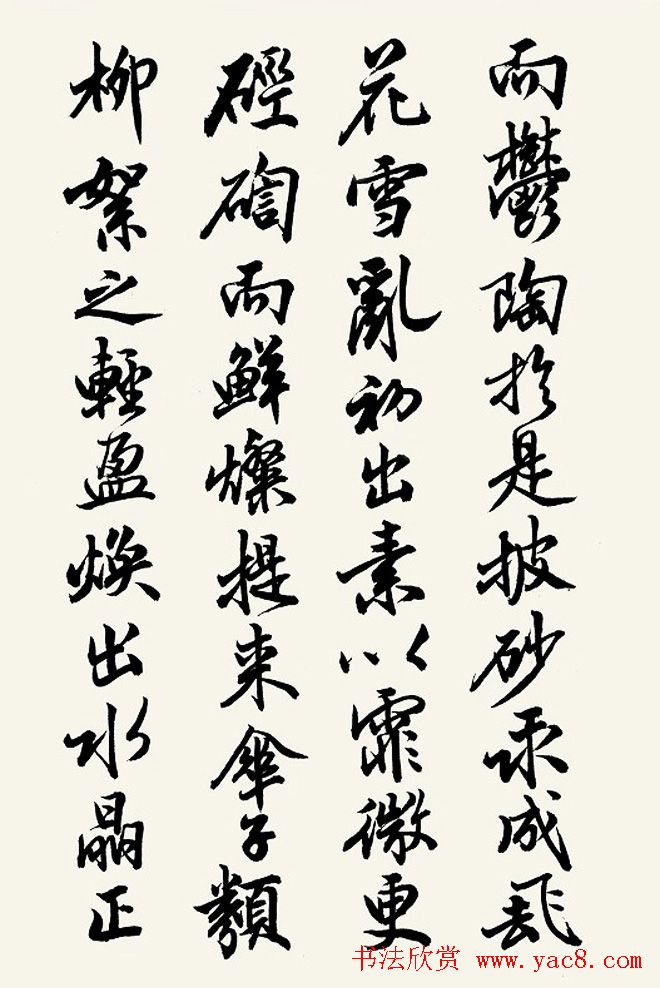 而鬱陶於是披砂成飛
花雪亂初出素以霏微更
硜而鮮燦提來傘子類
柳絮之輕盈煥出水晶正
书法欣赏 www.yac8.com